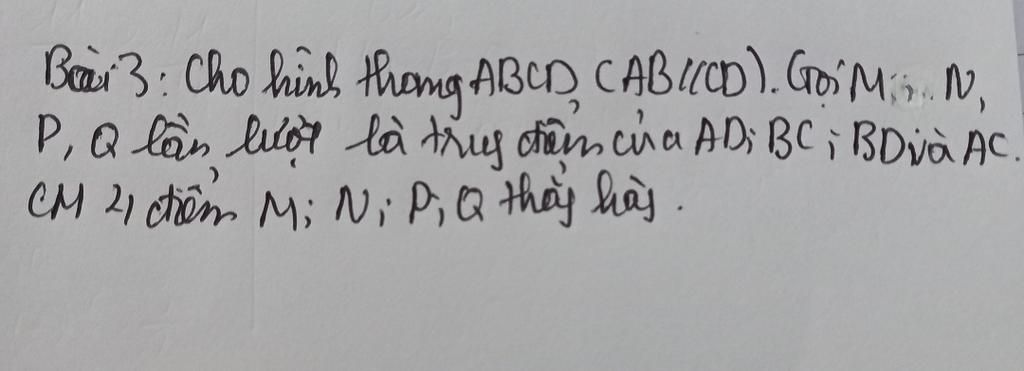 Bài 3: Cho hình thang ABCD (AB//CD). Gọi M; N,
P, Q lần lượt là trung điểm của AD; BC; BD và AC.
CM 4 điểm M; N; P; Q thẳng hàng.